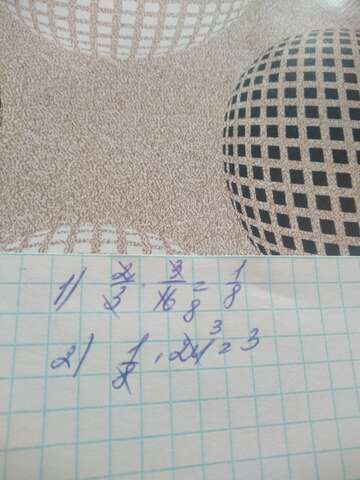 1) 2/3 · 3/16 8 = 1/8
2) 1/8 · 24 3 = 3